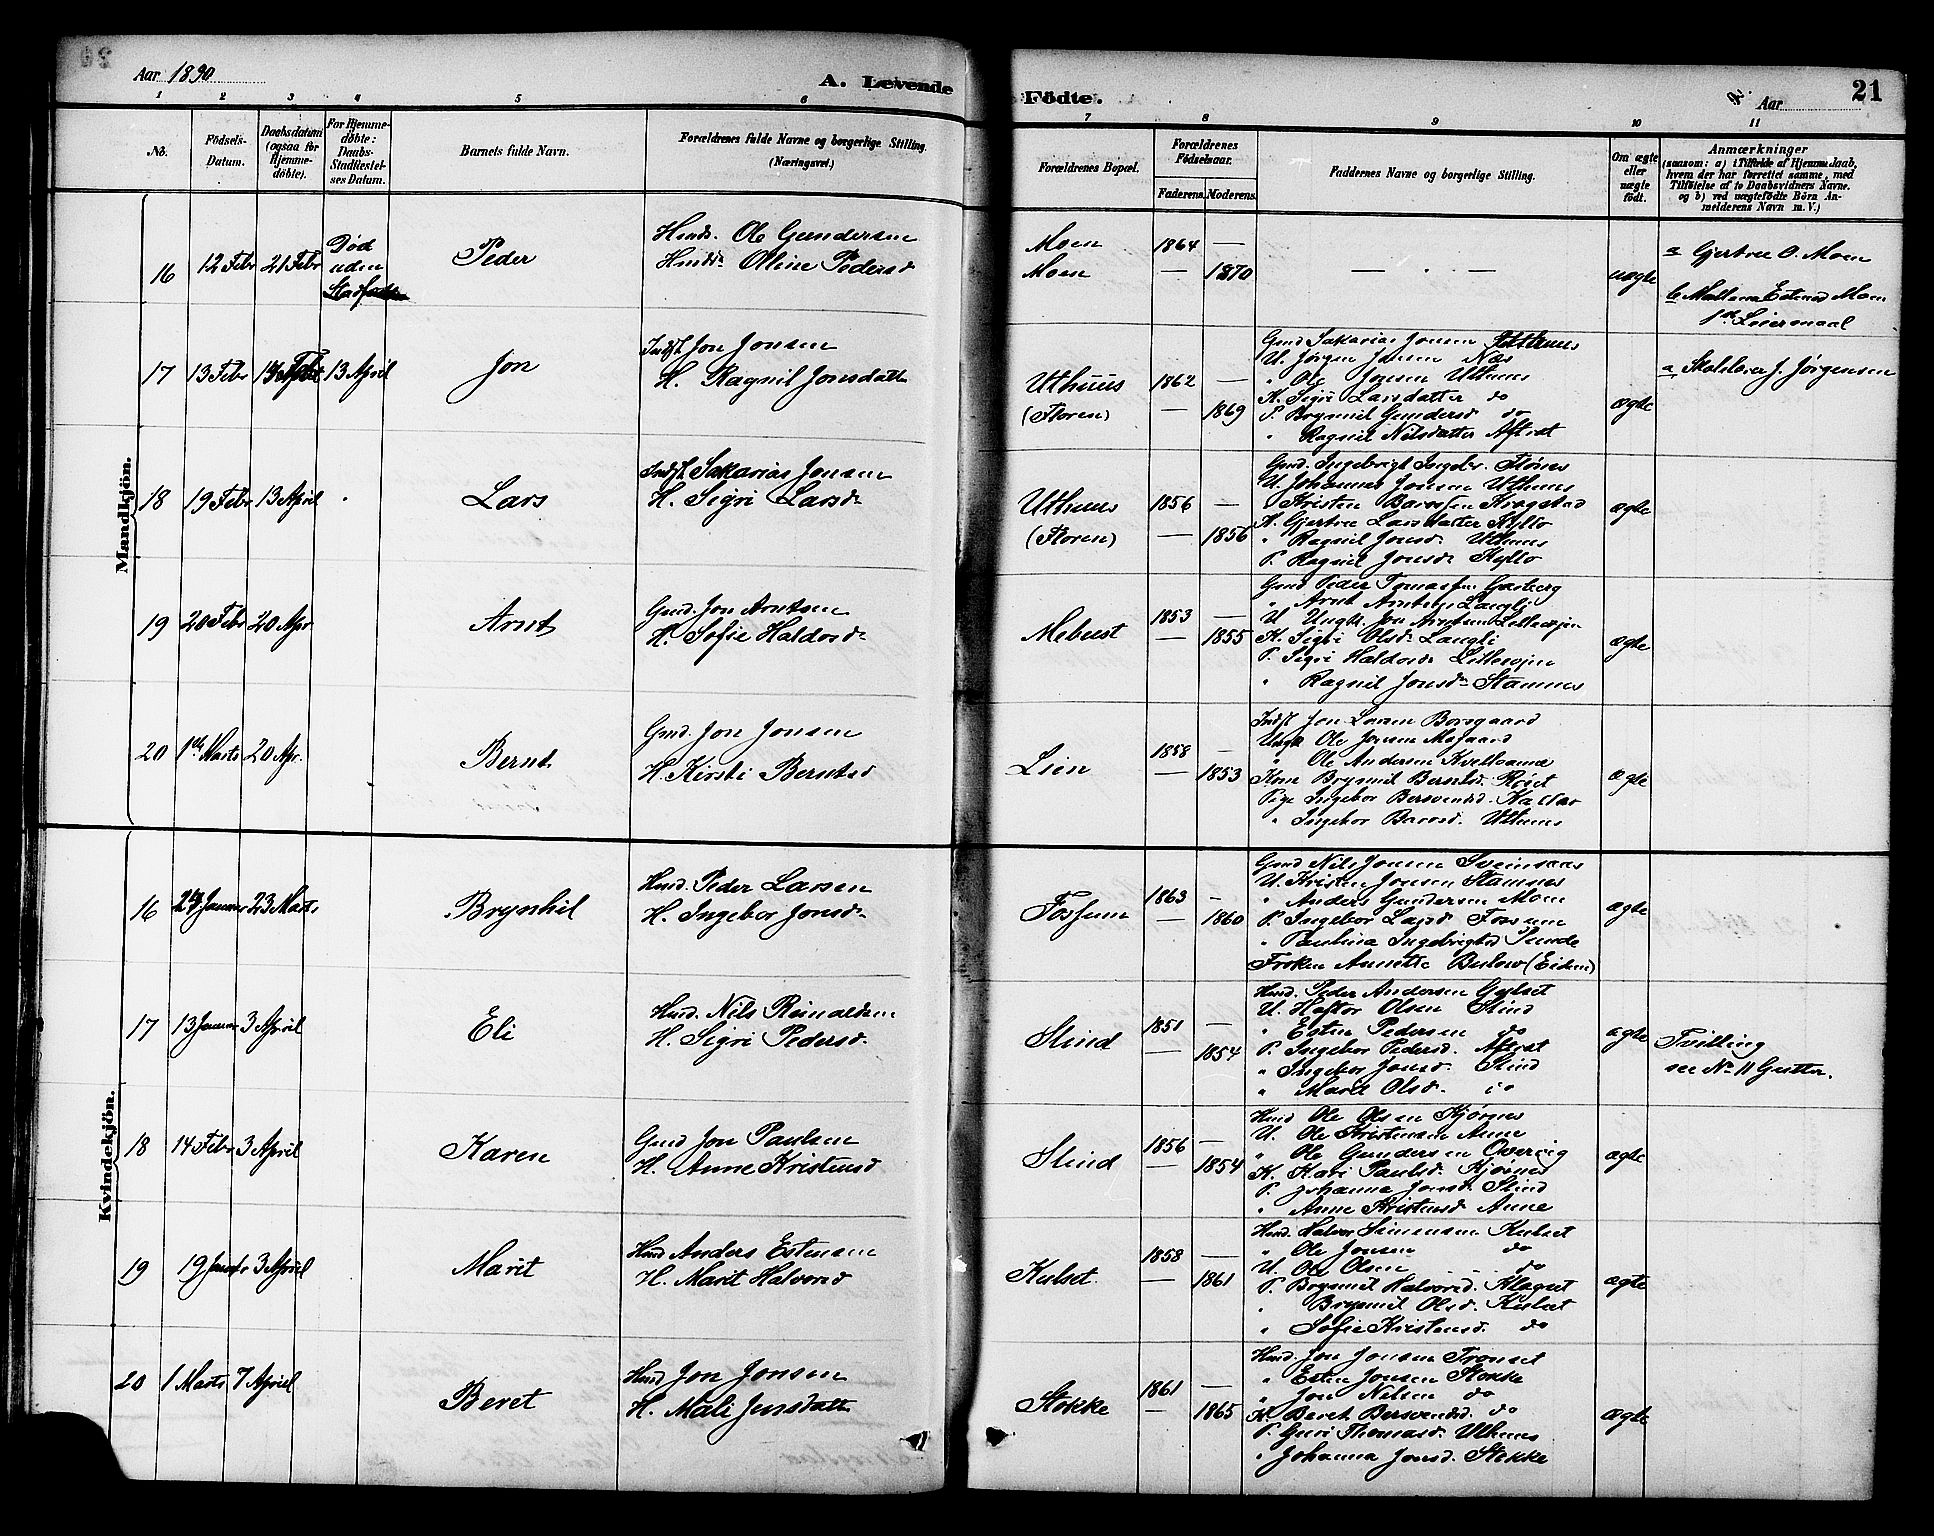 Aar 1890
A. Levende Födte.
Aar
21
1 2 3 4 5 6 7 8 9 10 11
No.
Födsels-Datum.
Daabsdatum (ogsaa for Hjemmedøbte).
For Hjemmedøbte: Daabs-Stadfæstelses Datum.
Barnets fulde Navn.
Forældrenes fulde Navne og borgerlige Stilling. (Næringsvei.)
Forældrenes Bopæl.
Forældrenes Fødselsaar.
Faderens. Moderens.
Faddernes Navne og borgerlige Stilling.
Om ægte eller uægte födt.
Anmærkninger
(saasom: a) i Tilfælde af Hjemmedaab,
hvem der har forrettet samme, med
Tilføielse af to Daabsvidners Navne.
og b) ved uægtefødte Börn An-
melderens Navn m. V.)
Mandkjön.
16 12 Febr 21 Febr Død uden Peder
Ole Gundersen
Oline Pedersd
Moen 1864 —
Moen — 1870
— " —
uægte
a Gjertru O. Moen
b Estensd Moen
1ste Leiermaal
17 13 Febr 13 April Jon
Indst Jon Jonsen
H. Ragnil Jonsdatt
Uthuus 1862 —
(Floren) — 1869
Gmd Sakarias Jonsen Uthuus
U. Jørgen Jonsen Næs
" Ole Jonsen Uthuus
K. Sigri Larsdatter do
P. Brynnil Gundersd do
" Ragnil Nilsdatter Aftret
ægte
a, J. Jørgensen
18 19 Febr 13 April Lars
Indst Sakarias Jonsen
H. Sigri Larsd.
Uthuus 1856 —
(Floren) — 1856
Gmd. Ingebrigt Ingebr. Flønes
U. Johannes Jonsen Uthuus
" Kristen Kragstad
K. Gjertru Larsdatter Kyllo
" Ragnil Jonsd. Uthuus
P. Ragnil Jonsd. Kyllo
ægte
19 20 Febr 20 Apr Arnt
Gmd. Jon Arntsen
H. Sofie Haldorsd.
Mebust 1853 —
— 1855
Gmd Peder Tomassen Garberg
" Arnt Arntsen Langli
U. Ungk. Jon Arntsen Litlevojen
K. Sigri Olsd. Langli
P. Sigri Haldorsd. Litlevojen
" Ragnil Jonsd. Stamnes
ægte
20 1ste Marts 20 Apr. Bernt
Gmd. Jon Jonsen
H. Kirsti Berntsd
Lien 1858 —
— 1853
Indst Jon Larsen Borsgaard
Ungk Ole Jonsen Mogaard
" Ole Andersen
Kone Brynnil Berntsd. Røset
Pige Ingebor Bersvendsd. Kallar
" Ingebor Uthuus
ægte
Kvindekjön.
16 Januar 23 Marts Brynhil
Hmd. Peder Larsen
H. Ingebor Jonsd.
Fossum 1863 —
— 1860
Gmd Nils Jonsen Sveinsaas
U. Kristen Jonsen Stamnes
" Anders Gundersen Moen
P. Ingebor Larsd Fossum
" Paulina Ingebrigtsd Sunde
Frøken Annette Bulow (Eidem)
ægte
17 13 Januar 3 April Eli
Hmd. Nils Reinaldsen
H. Sigri Pedersd.
Slind 1851 —
— 1854
Hmd. Peder Andersen Gylset
U. Haftor Olsen Slind
" Esten Pedersen do
P. Ingebor Pedersd. Aftret
" Ingebor Jonsd. Slind
" Marit Olsd. do
ægte
Tvilling
see No 11 Gutter.
18 14 Febr 3 April Karen
Gmd Jon Paulsen
H. Anne Kristensd
Slind 1856 —
— 1854
Hmd Ole Olsen Kjørnes
U. Ole Kristensen Aune
" Ole Gundersen Overvig
K. Kari Paulsd. Kjørnes
P. Johanna Jonsd. Slind
" Anne Kristensd Aune
ægte
19 19 Januar 3 April Marit
Hmd Anders Estensen
H. Marit Halvorsd
Kulset 1858 —
— 1861
Hmd. Halvor Simensen Kulset
" Ole Jonsen do
U. Ole Olsen do
P. Brynnil Halvorsd. Klegset
" Brynnil Olsd. Kulset
" Sofie Kristensd. do
ægte
20 1 Marts 7 April Beret
Hmd Jon Jonsen
H. Mali Jensdatt
Stokke 1861 —
— 1865
Hmd. Jon Jonsen Tronset
" Esten Jonsen Stokke
" Jon Nilsen do
K. Beret Bersvendsd. do
P. Guri Thomasd. Uthuus
" Johanna Jonsd. Stokke
ægte